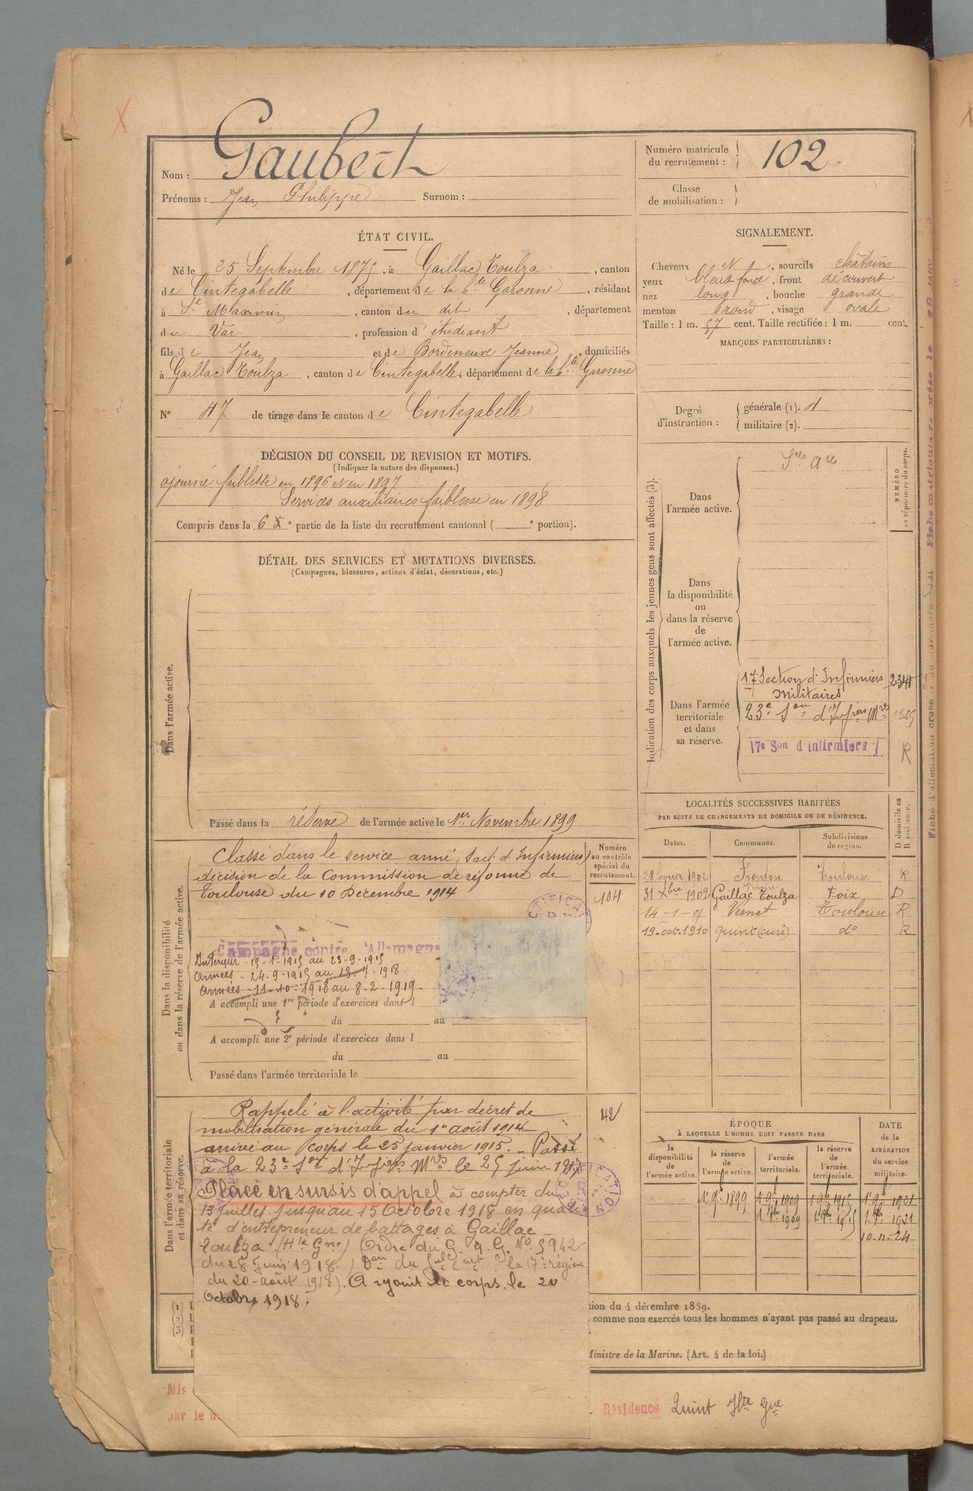 Nom : Gaubert
Prénoms : Jean Philippe Surnom :
Numéro matricule du recrutement : 102
Classe de mobilisation :
ÉTAT CIVIL.
Né le 25 Septembre 1875, à Gaillac Toulza, canton
de Cintegabelle, département de la Hte Garonne, résidant
à St Maximin, canton du dit, département
du Var, profession d'étudiant
fils de Jean et de Bordeneuve Jeanne, domiciliés
à Gaillac Toulza, canton de Cintegabelle, département de la Hte Garonne
N° 47 de tirage dans le canton de Cintegabelle
SIGNALEMENT.
Cheveux , sourcils châtains
yeux bleus foncé, front découvert
nez long, bouche grande
menton rond, visage ovale
Taille : 1 m. 57 cent. Taille rectifiée : 1 m. cent.
MARQUES PARTICULIÈRES :
Degré d'instruction : générale (1).
militaire (2).
DÉCISION DU CONSEIL DE REVISION ET MOTIFS.
(Indiquer la nature des dispenses.)
ajourné faiblesse en 1896 et en 1897
Services auxiliaires faiblesse en 1898
Compris dans la 6e partie de la liste du recrutement cantonal ( e portion).
DÉTAIL DES SERVICES ET MUTATIONS DIVERSES.
(Campagnes, blessures, actions d'éclat, décorations, etc.)
Dans l'armée active.
Passé dans la réserve de l'armée active le 1er Novembre 1899
Indication des corps auxquels les jeunes gens sont affectés (3).
NUMÉRO au répertoire du corps.
Dans l'armée active.
Dans la disponibilité ou dans la réserve de l'armée active.
Dans l'armée territoriale et dans sa réserve.
17e Section d'Infirmiers Militaires
23e Son d'Infiers Mres
17e Son d'infirmiers
R
LOCALITÉS SUCCESSIVES HABITÉES
PAR SUITE DE CHANGEMENTS DE DOMICILE OU DE RÉSIDENCE.
Dates. Communes. Subdivisions de région. D domicile ou R résidence.
Toulouse R
31 Xbre 1909 Gaillac Toulza Foix D
Vernet Toulouse R
19 oct. 1910 Quint (curé) do R
Dans la disponibilité ou dans la réserve de l'armée active.
Numéro au contrôle spécial du recrutement.
104
Classé dans le service armé, Sect d'Infirmiers
décision de la Commission de réforme de
Toulouse du 10 Décembre 1914
Campagne contre l'Allemagne
Intérieur - 15-1-1915 au 23-9-1915
Armées - 24-9-1915 au 13-7-1918.
Armées - 11-10-1918 au 8-2-1919.
A accompli une 1re période d'exercices dans l
du au
A accompli une 2e période d'exercices dans l
du au
Passé dans l'armée territoriale le
Dans l'armée territoriale et dans sa réserve.
42
Rappelé à l'activité par décret de
mobilisation générale du 1er août 1914
arrivé au corps le 25 janvier 1915. Passé
à la 23e Son d'Infiers Mres le 25 juin
Placé en sursis d'appel à compter du
13 juillet jusqu'au 15 Octobre 1918 en qua
té d'entrepreneur de battages à Gaillac-
Toulza (Hte Gne) (Ordre du G. Q. G. No 5942
du 28 Juin 1918.) la 17e région
du 20 août 1918). A rejoint le corps le 20
Octobre 1918.
ÉPOQUE
À LAQUELLE L'HOMME DOIT PASSER DANS
la disponibilité de l'armée active. la réserve de l'armée active. l'armée territoriale. la réserve de l'armée territoriale.
DATE de la LIBÉRATION du service militaire.
10-11-24
tion du 4 décembre 1889.
comme non exercés tous les hommes n'ayant pas passé au drapeau.
Ministre de la Marine. (Art. 4 de la loi.)
Mis
par le d
Résidence Quint Hte Gne